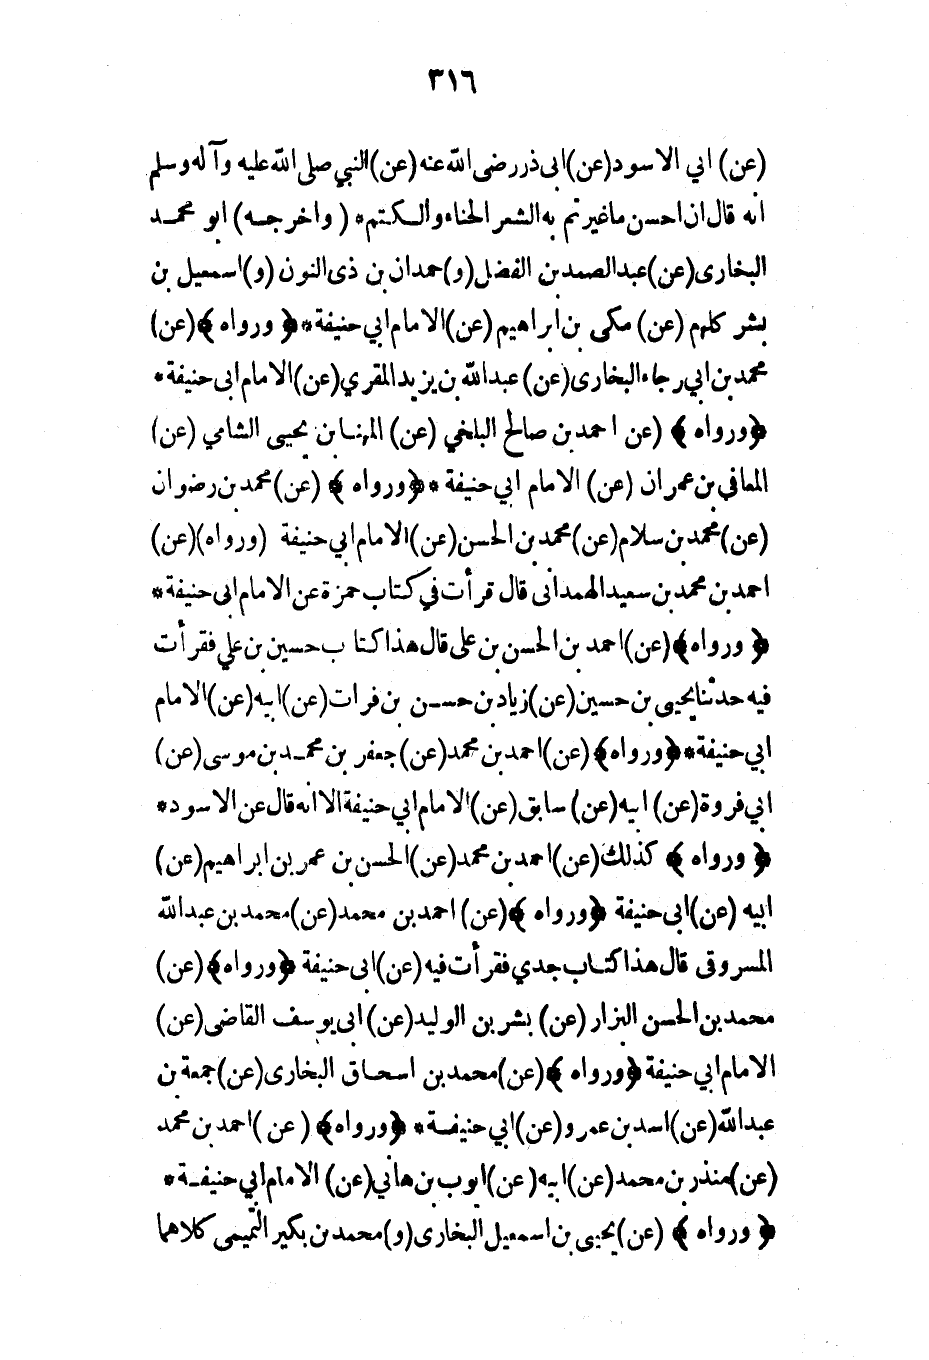 ٣١٦
(عن) ابي الاسود(عن)ابى ذر رضى الله عنه(عن)النبي صلى الله عليه وآله وسلم
انه قال ان احسن ما غيرتم به الشعر الحناء والكتم* (واخرجه) ابو محمد
البخارى(عن)عبدالصمد بن الفضل(و)حمدان بن ذى النون(و)اسمعيل بن
بشر كلهم (عن) مكى بن ابراهيم (عن)الامام ابي حنيفة*﴿ورواه﴾(عن)
محمد بن ابي رجاء البخارى(عن)عبدالله بن يزيد المقري(عن)الامام ابى حنيفة*
﴿ورواه﴾ (عن احمد بن صالح البلخي (عن) المهنا بن يحيى الشامي (عن)
المعافي بن عمران (عن) الامام ابي حنيفة *﴿ورواه﴾ (عن)محمد بن رضوان
(عن)محمد بن سلام(عن)محمد بن الحسن(عن)الامام ابي حنيفة (ورواه)(عن)
احمد بن محمد بن سعيد الهمدانى قال قرأت في كتاب حمزة عن الامام ابى حنيفة*
﴿ورواه﴾(عن)احمد بن الحسن بن على قال هذا كتاب حسين بن علي فقرأت
فيه حدثنا يحيى بن حسين(عن)زياد بن حسن بن فرات(عن)ابيه(عن)الامام
ابي حنيفة*﴿ورواه﴾(عن)احمد بن محمد(عن)جعفر بن محمد بن موسى(عن)
ابي فروة(عن)ابيه(عن)سابق(عن)الامام ابي حنيفة الا انه قال عن الاسود*
﴿ورواه﴾ كذلك(عن)احمد بن محمد(عن)الحسن بن عمر بن ابراهيم(عن)
ابيه (عن)ابى حنيفة ﴿ورواه﴾(عن)احمد بن محمد(عن)محمد بن عبدالله
المسروقى قال هذا كتاب جدي فقرأت فيه(عن)ابى حنيفة ﴿ورواه﴾(عن)
محمد بن الحسن البزار (عن) بشر بن الوليد(عن)ابى يوسف القاضى(عن)
الامام ابي حنيفة﴿ورواه﴾(عن)محمد بن اسحاق البخارى(عن)جمعة بن
عبدالله(عن)اسد بن عمرو(عن)ابي حنيفة*﴿ورواه﴾(عن)احمد بن محمد
(عن)منذر بن محمد(عن)ابيه(عن)ايوب بن هاني(عن)الامام ابي حنيفة*
﴿ورواه﴾ (عن)يحيى بن اسمعيل البخارى(و)محمد بن بكير التميمى كلاهما